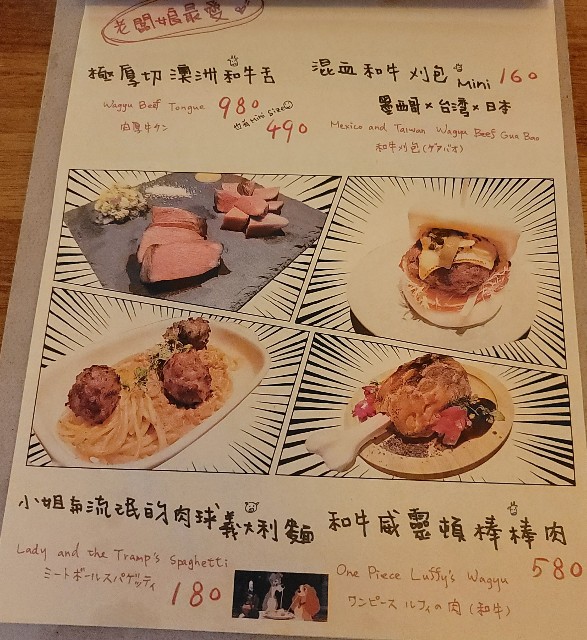 老闆娘最愛
極厚切澳洲和牛舌
Wagyu Beef Tongue 980
肉厚牛タン
也有Mini Size 490
混血和牛刈包 Mini 160
墨西哥×台湾×日本
Mexico and Taiwan Wagyu Beef Gua Bao
和牛刈包(グアバオ)
小姐與流氓的肉球義大利麵
Lady and the Tramp's Spaghetti
ミートボールスパゲッティ
180
和牛威靈頓棒棒肉
580
One Piece Luffy's Wagyu
ワンピース ルフィの肉(和牛)